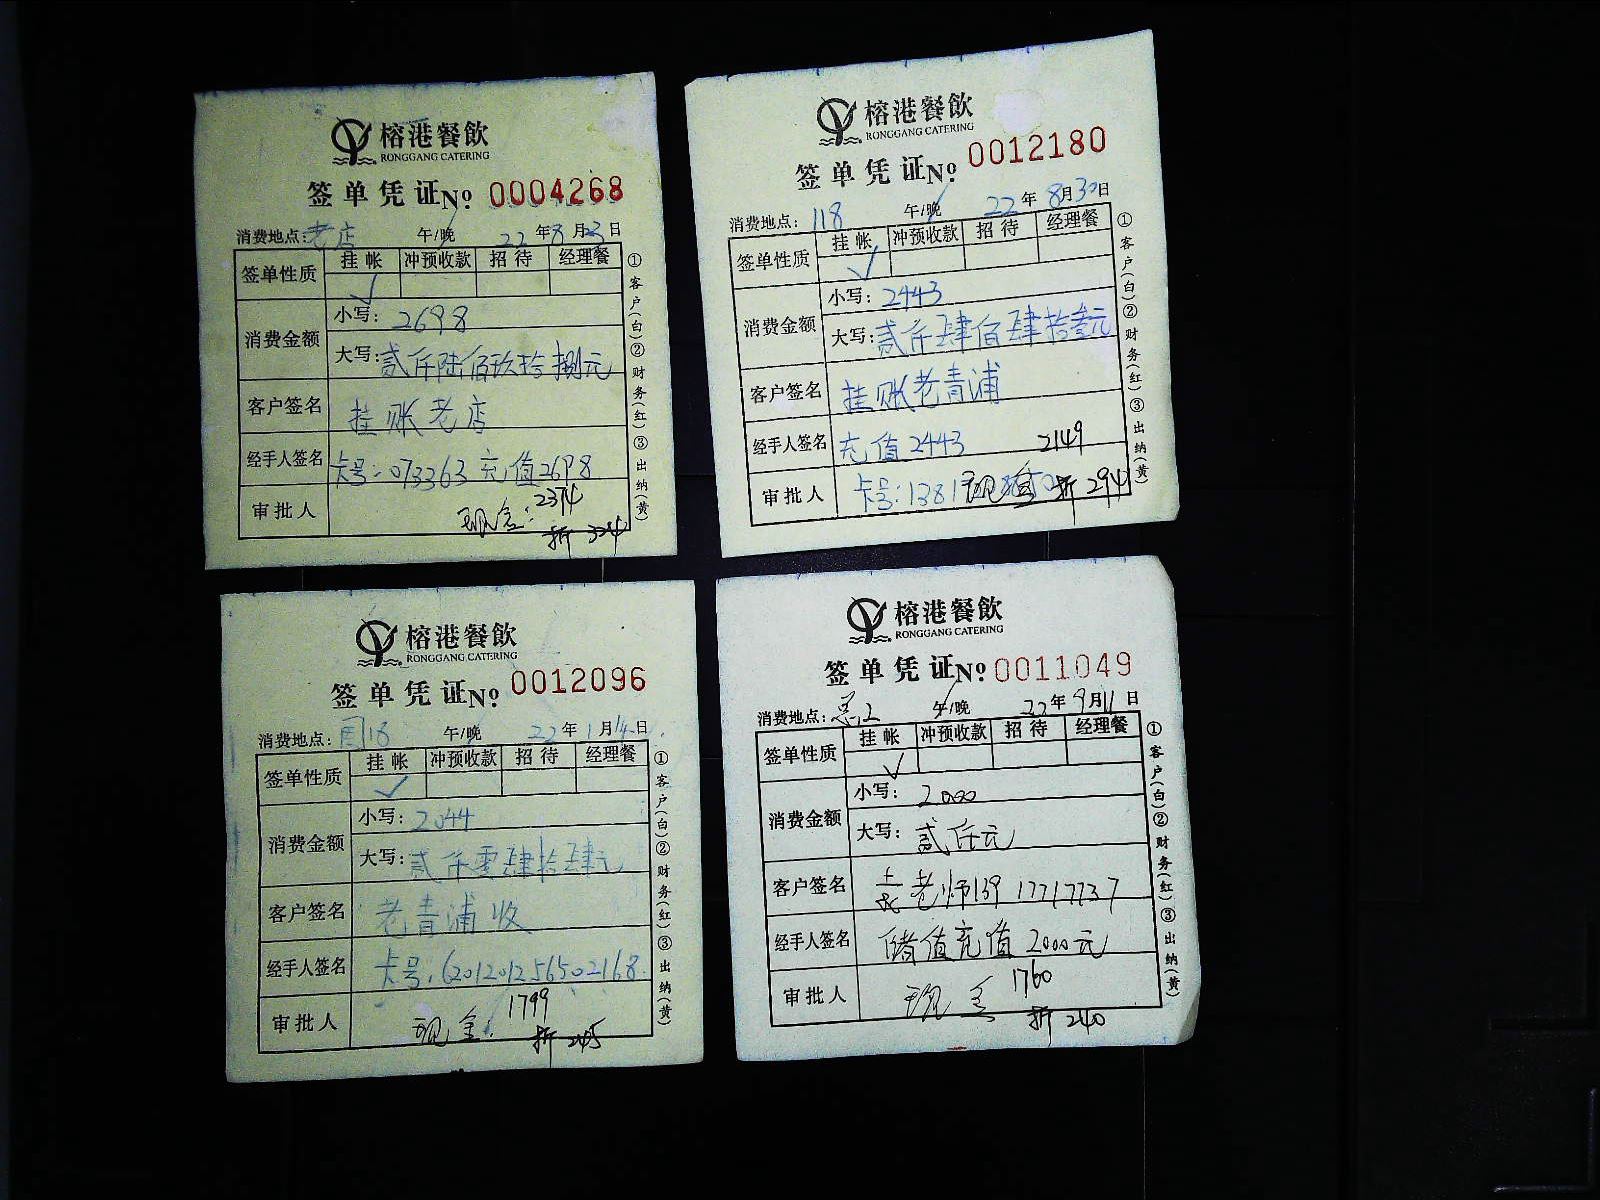 榕港餐飲
RONGGANG CATERING
签单凭证 No. 0004268
消费地点: 老店 午/晚 22年8月23日
签单性质 挂帐 冲预收款 招待 经理餐
✓
消费金额 小写: 2698
大写: 贰仟陆佰玖拾捌元
客户签名 挂账老店
经手人签名 卡号: 073363 充值2698
审批人 现金: 2374
折 324
①客户(白)②财务(红)③出纳(黄)
榕港餐飲
RONGGANG CATERING
签单凭证 No. 0012180
消费地点: 118 午/晚 22年8月30日
签单性质 挂帐 冲预收款 招待 经理餐
✓
消费金额 小写: 2443
大写: 贰仟肆佰肆拾叁元
客户签名 挂账老青浦
经手人签名 充值2443 2149
审批人 卡号: 1381 现金 折 294
①客户(白)②财务(红)③出纳(黄)
榕港餐飲
RONGGANG CATERING
签单凭证 No. 0012096
消费地点: 午/晚 22年1月14日
签单性质 挂帐 冲预收款 招待 经理餐
✓
消费金额 小写: 2044
大写: 贰仟零肆拾肆元
客户签名 老青浦收
经手人签名 卡号: 6201201256502168
审批人 现金: 1799
折 245
①客户(白)②财务(红)③出纳(黄)
榕港餐飲
RONGGANG CATERING
签单凭证 No. 0011049
消费地点: 午/晚 22年9月11日
签单性质 挂帐 冲预收款 招待 经理餐
✓
消费金额 小写: 2000
大写: 贰仟元
客户签名 老师139 17717737
经手人签名 储值充值2000元
审批人 现金 1760
折 240
①客户(白)②财务(红)③出纳(黄)